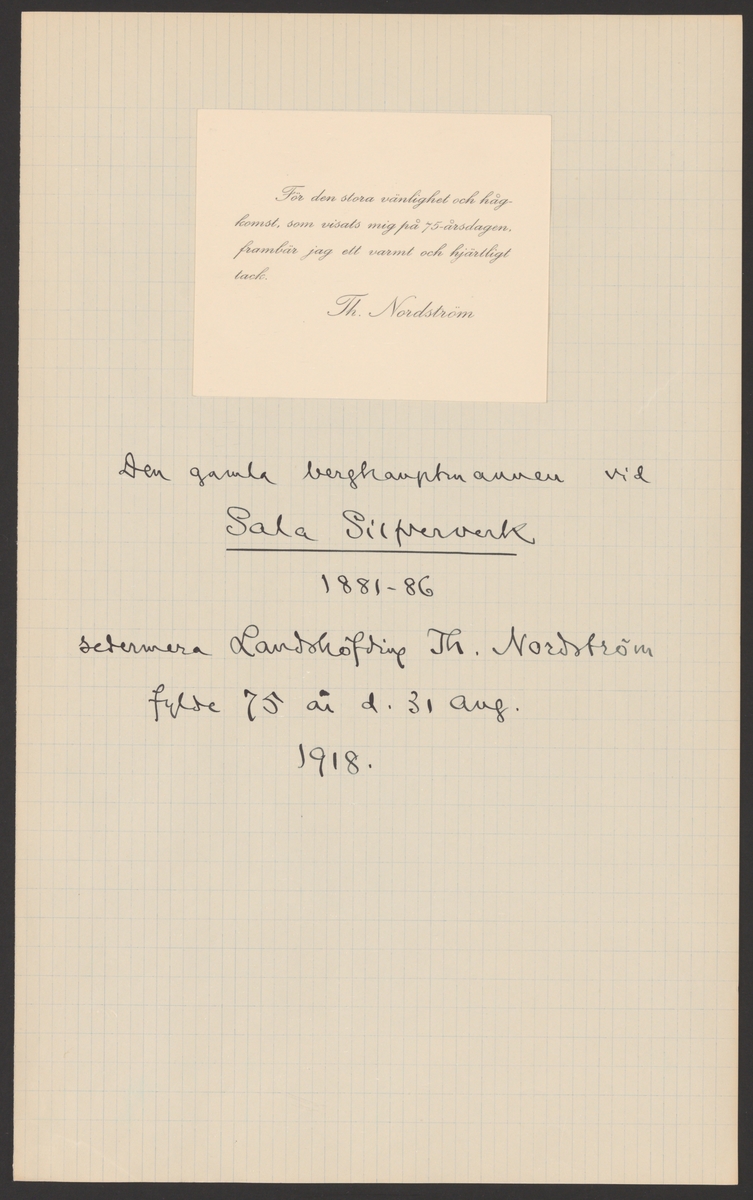 För den stora vänlighet och håg-
komst, som visats mig på 75-årsdagen,
frambär jag ett varmt och hjärtligt
tack.
Th. Nordström
Den gamla berghauptmannen vid
Sala Silfververk
1881-86
sedermera Landshöfding Th. Nordström
fylde 75 år d. 31 Aug.
1918.